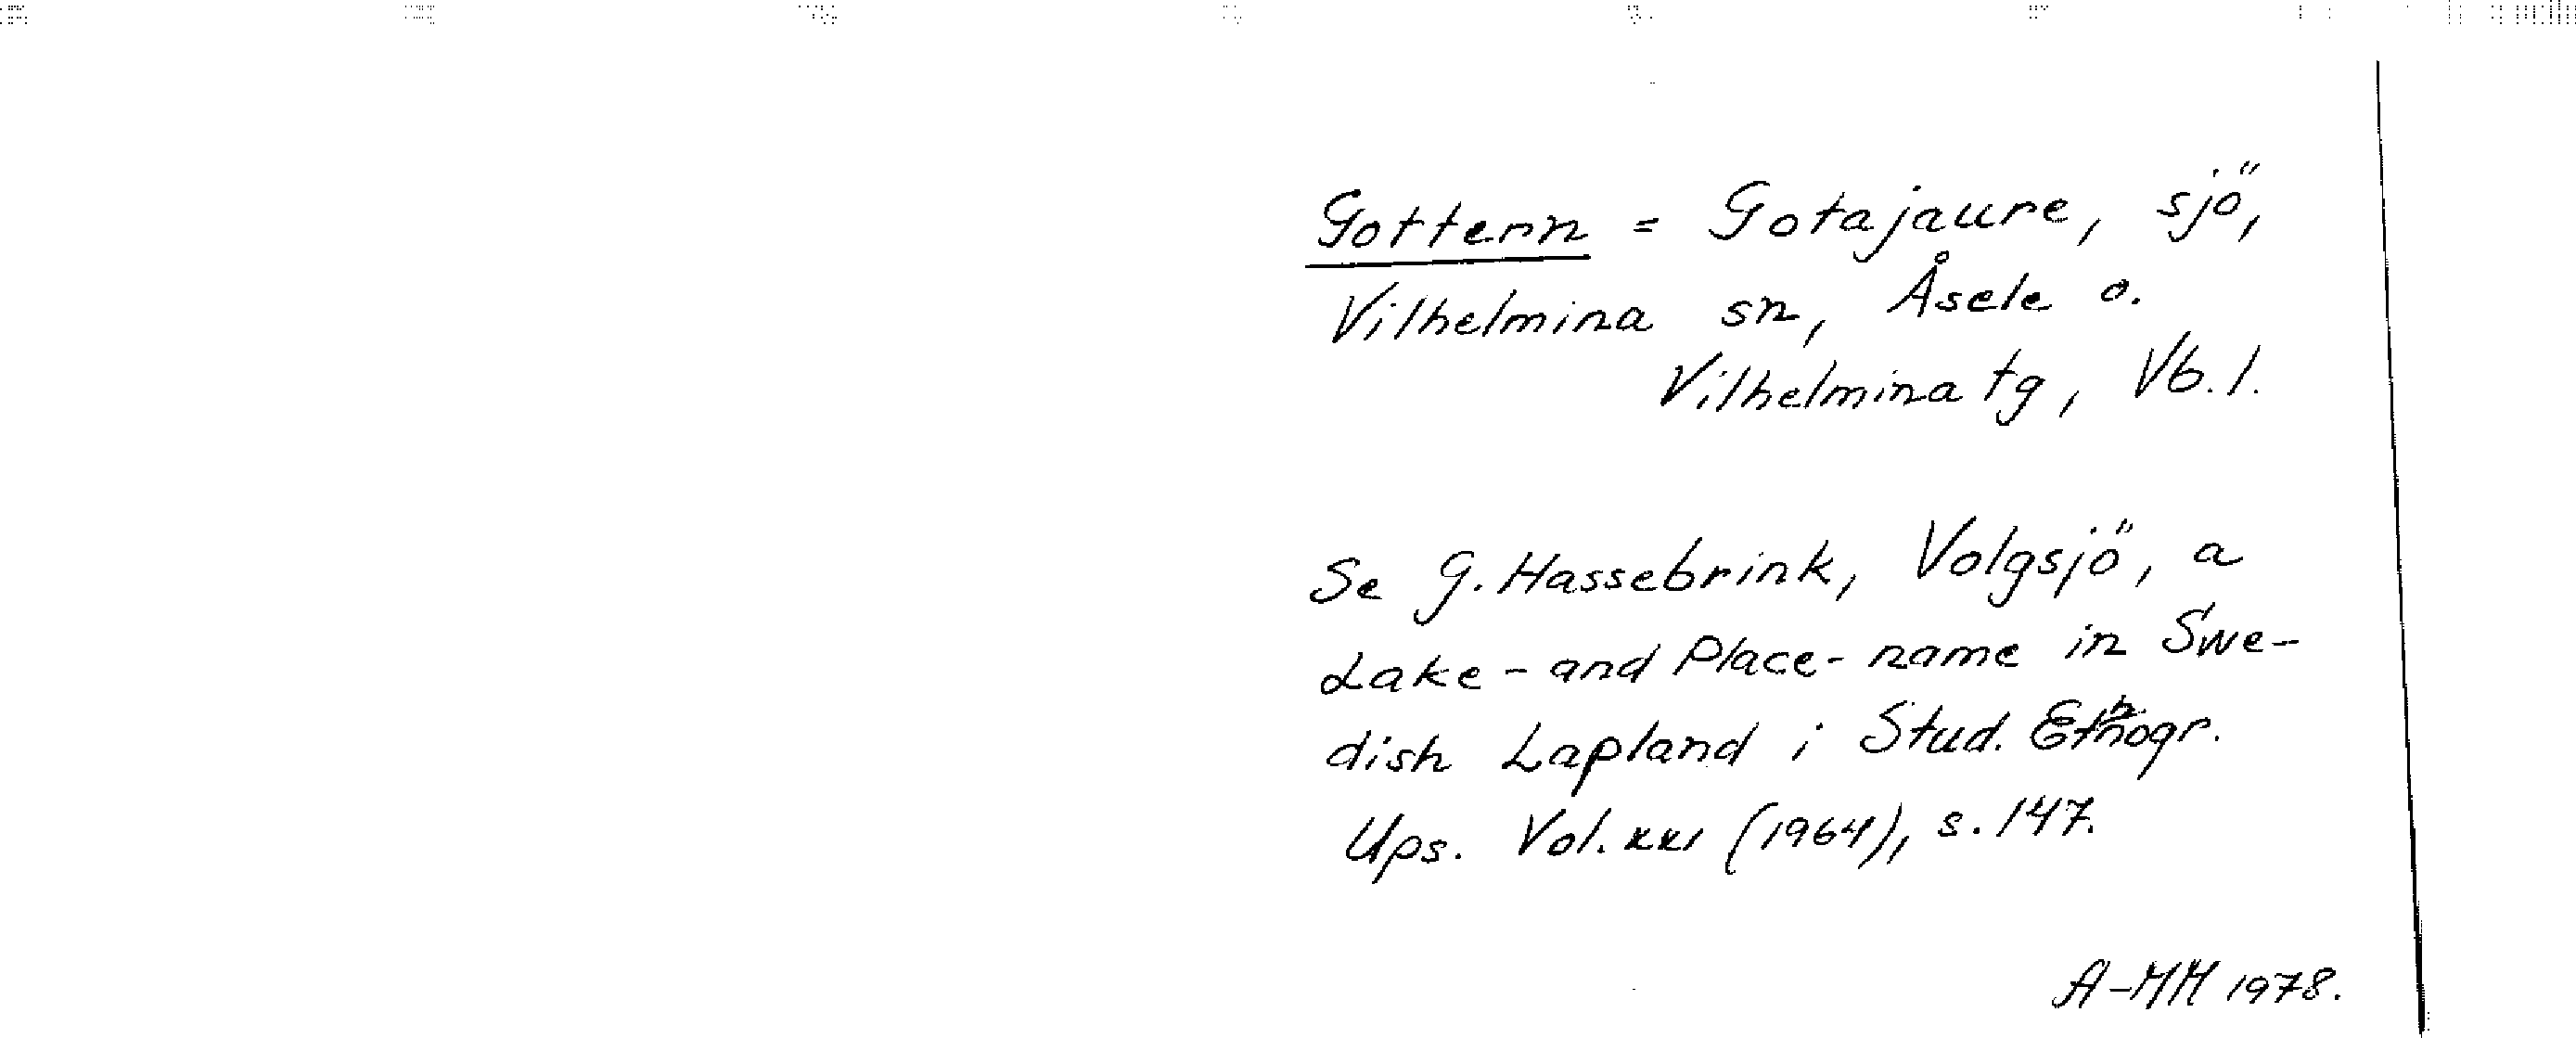 Gottern = Gotajaure, sjö,
Vilhelmina sn, Åsele o.
Vilhelmina tg, Vb. l.
Se G. Hassebrink, Volgsjö, a
Lake- and Place-name in Swe-
dish Lapland i Stud. Ethnogr.
Ups. Vol. XXI (1964), s. 147.
A-MM 1978.